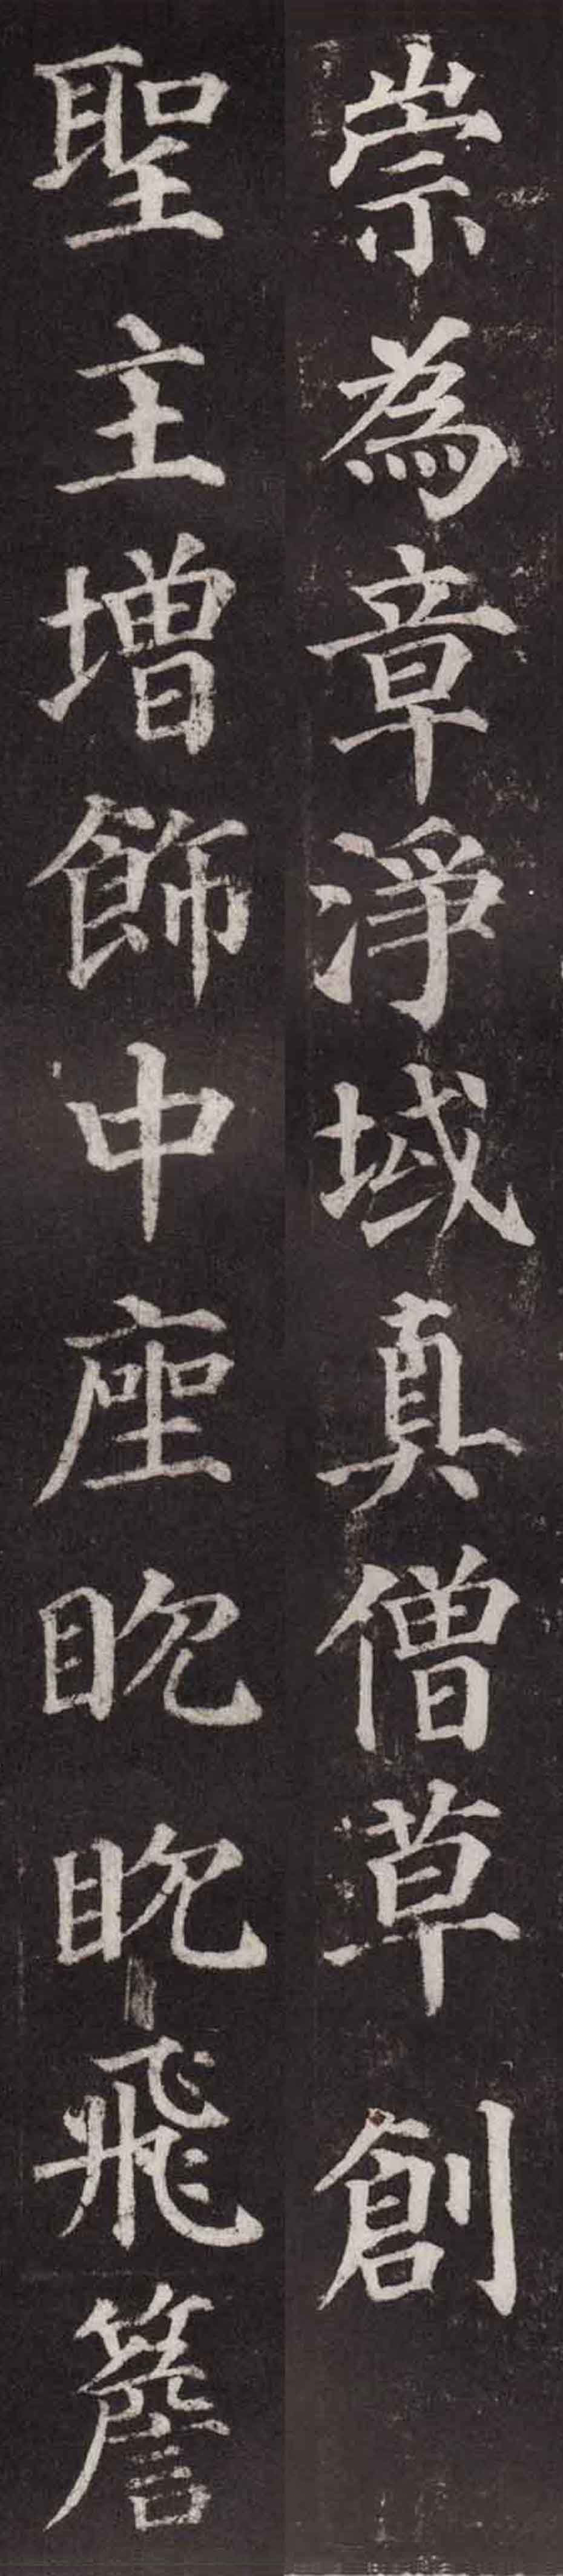 崇為章淨域真僧草創
聖主增飾中座眈眈飛簷